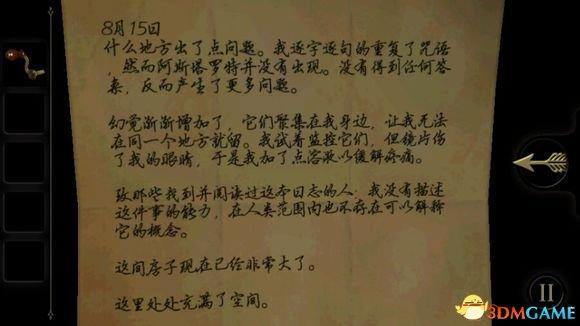 8月15日
什么地方出了点问题。我逐字逐句的重复了咒语
，然而阿斯塔罗特并没有出现。没有得到任何答
案，反而产生了更多问题。
幻觉渐渐增加了，它们聚集在我身边，让我无法
在同一个地方就留。我试着监控它们，但镜片伤
了我的眼睛，于是我加了点溶液以缓解疼痛。
致那些找到并阅读过这本日志的人，我没有描述
这件事的能力，在人类范围内也不存在可以解释
它的概念。
这间房子现在已经非常大了。
这里处处充满了空间。
3DMGAME